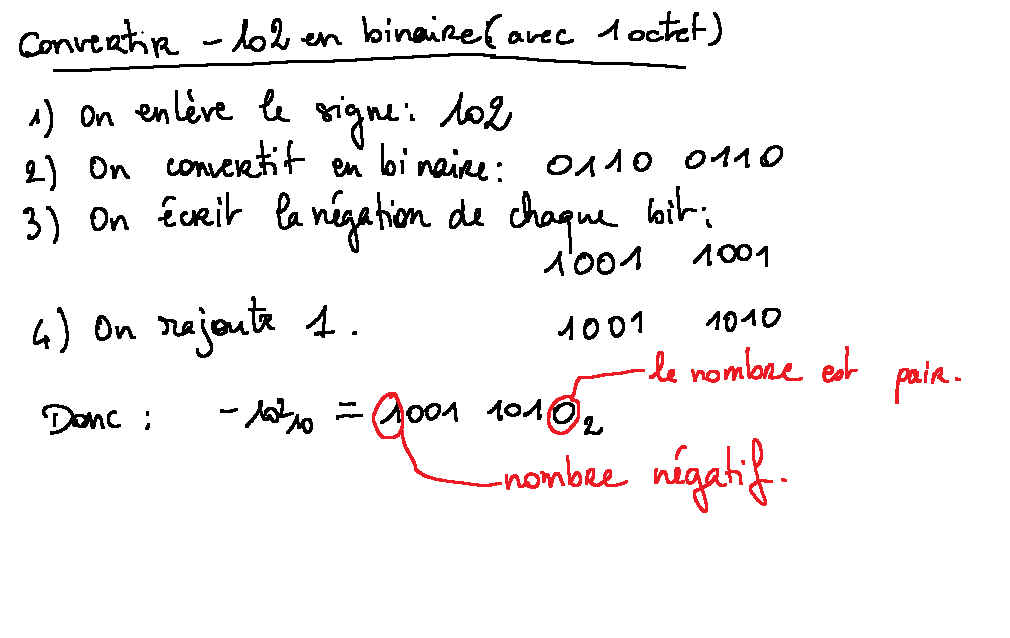 Convertir -102 en binaire (avec 1 octet)
1) On enlève le signe: 102
2) On convertit en binaire: 0110 0110
3) On écrit la négation de chaque bit:
1001 1001
4) On rajoute 1. 1001 1010
le nombre est pair.
Donc: -102₁₀ = 1001 1010₂
nombre négatif.